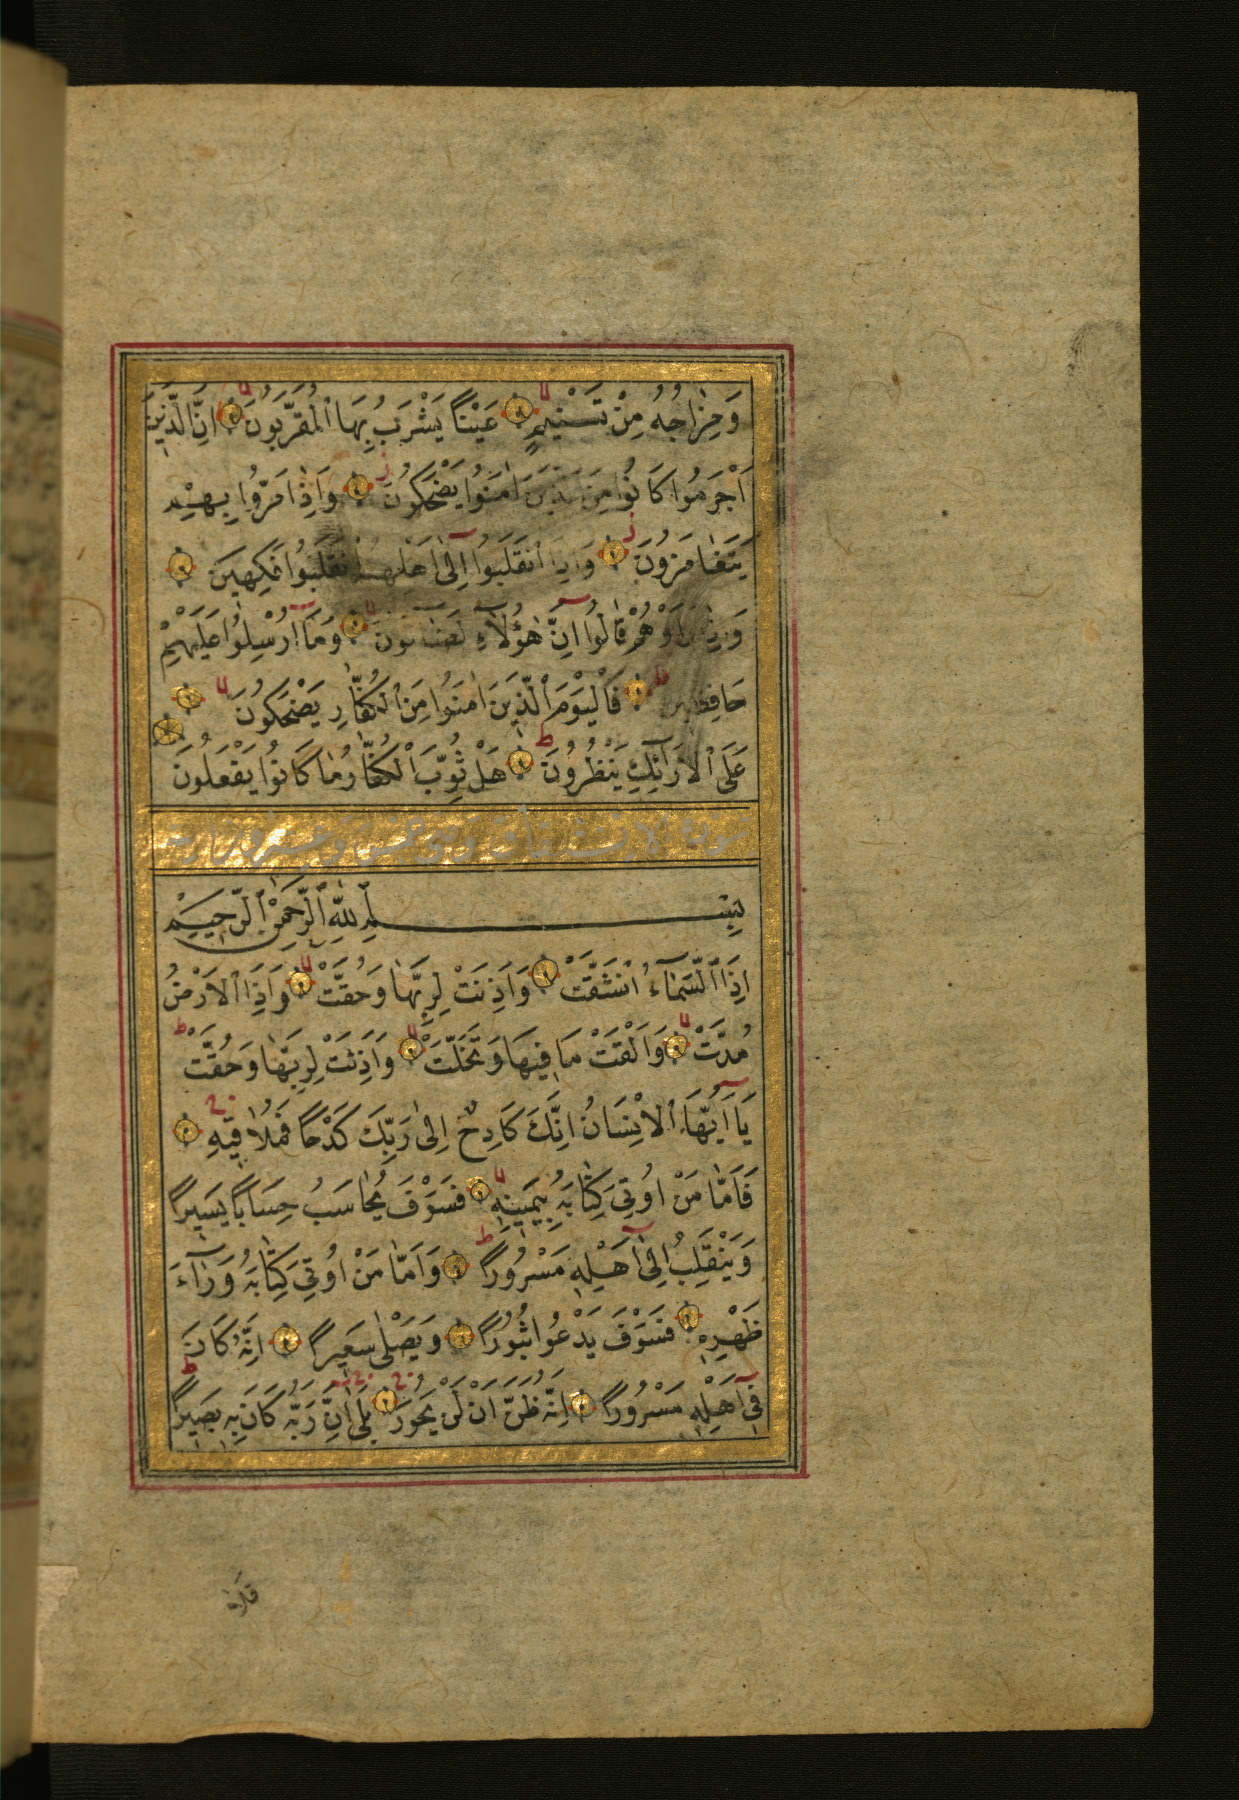 وَمِزَاجُهُ مِنْ تَسْنِيمٍ عَيْنًا يَشْرَبُ بِهَا الْمُقَرَّبُونَ اِنَّ الَّذِينَ
اَجْرَمُوا كَانُوا مِنَ الَّذِينَ اٰمَنُوا يَضْحَكُونَ وَاِذَا مَرُّوا بِهِمْ
يَتَغَامَزُونَ وَاِذَا انْقَلَبُوا اِلٰى اَهْلِهِمُ انْقَلَبُوا فَكِهِينَ
وَاِذَا رَاَوْهُمْ قَالُوا اِنَّ هٰؤُلَاءِ لَضَالُّونَ وَمَا اُرْسِلُوا عَلَيْهِمْ
حَافِظِينَ فَالْيَوْمَ الَّذِينَ اٰمَنُوا مِنَ الْكُفَّارِ يَضْحَكُونَ
عَلَى الْاَرَائِكِ يَنْظُرُونَ هَلْ ثُوِّبَ الْكُفَّارُ مَا كَانُوا يَفْعَلُونَ
سورة الانشقاق وهى خمس وعشرون اية
بِسْمِ اللّٰهِ الرَّحْمٰنِ الرَّحِيمِ
اِذَا السَّمَاءُ انْشَقَّتْ وَاَذِنَتْ لِرَبِّهَا وَحُقَّتْ وَاِذَا الْاَرْضُ
مُدَّتْ وَاَلْقَتْ مَا فِيهَا وَتَخَلَّتْ وَاَذِنَتْ لِرَبِّهَا وَحُقَّتْ
يَا اَيُّهَا الْاِنْسَانُ اِنَّكَ كَادِحٌ اِلٰى رَبِّكَ كَدْحًا فَمُلَاقِيهِ
فَاَمَّا مَنْ اُوتِيَ كِتَابَهُ بِيَمِينِهِ فَسَوْفَ يُحَاسَبُ حِسَابًا يَسِيرًا
وَيَنْقَلِبُ اِلٰى اَهْلِهِ مَسْرُورًا وَاَمَّا مَنْ اُوتِيَ كِتَابَهُ وَرَاءَ
ظَهْرِهِ فَسَوْفَ يَدْعُوا ثُبُورًا وَيَصْلٰى سَعِيرًا اِنَّهُ كَانَ
فِي اَهْلِهِ مَسْرُورًا اِنَّهُ ظَنَّ اَنْ لَنْ يَحُورَ بَلٰى اِنَّ رَبَّهُ كَانَ بِهِ بَصِيرًا
فَلَا